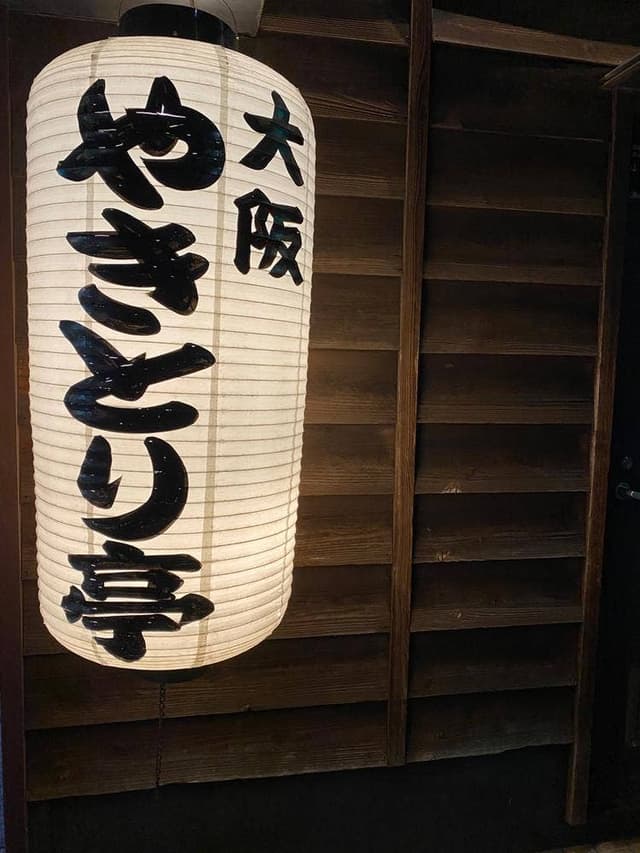 大阪
やきとり亭